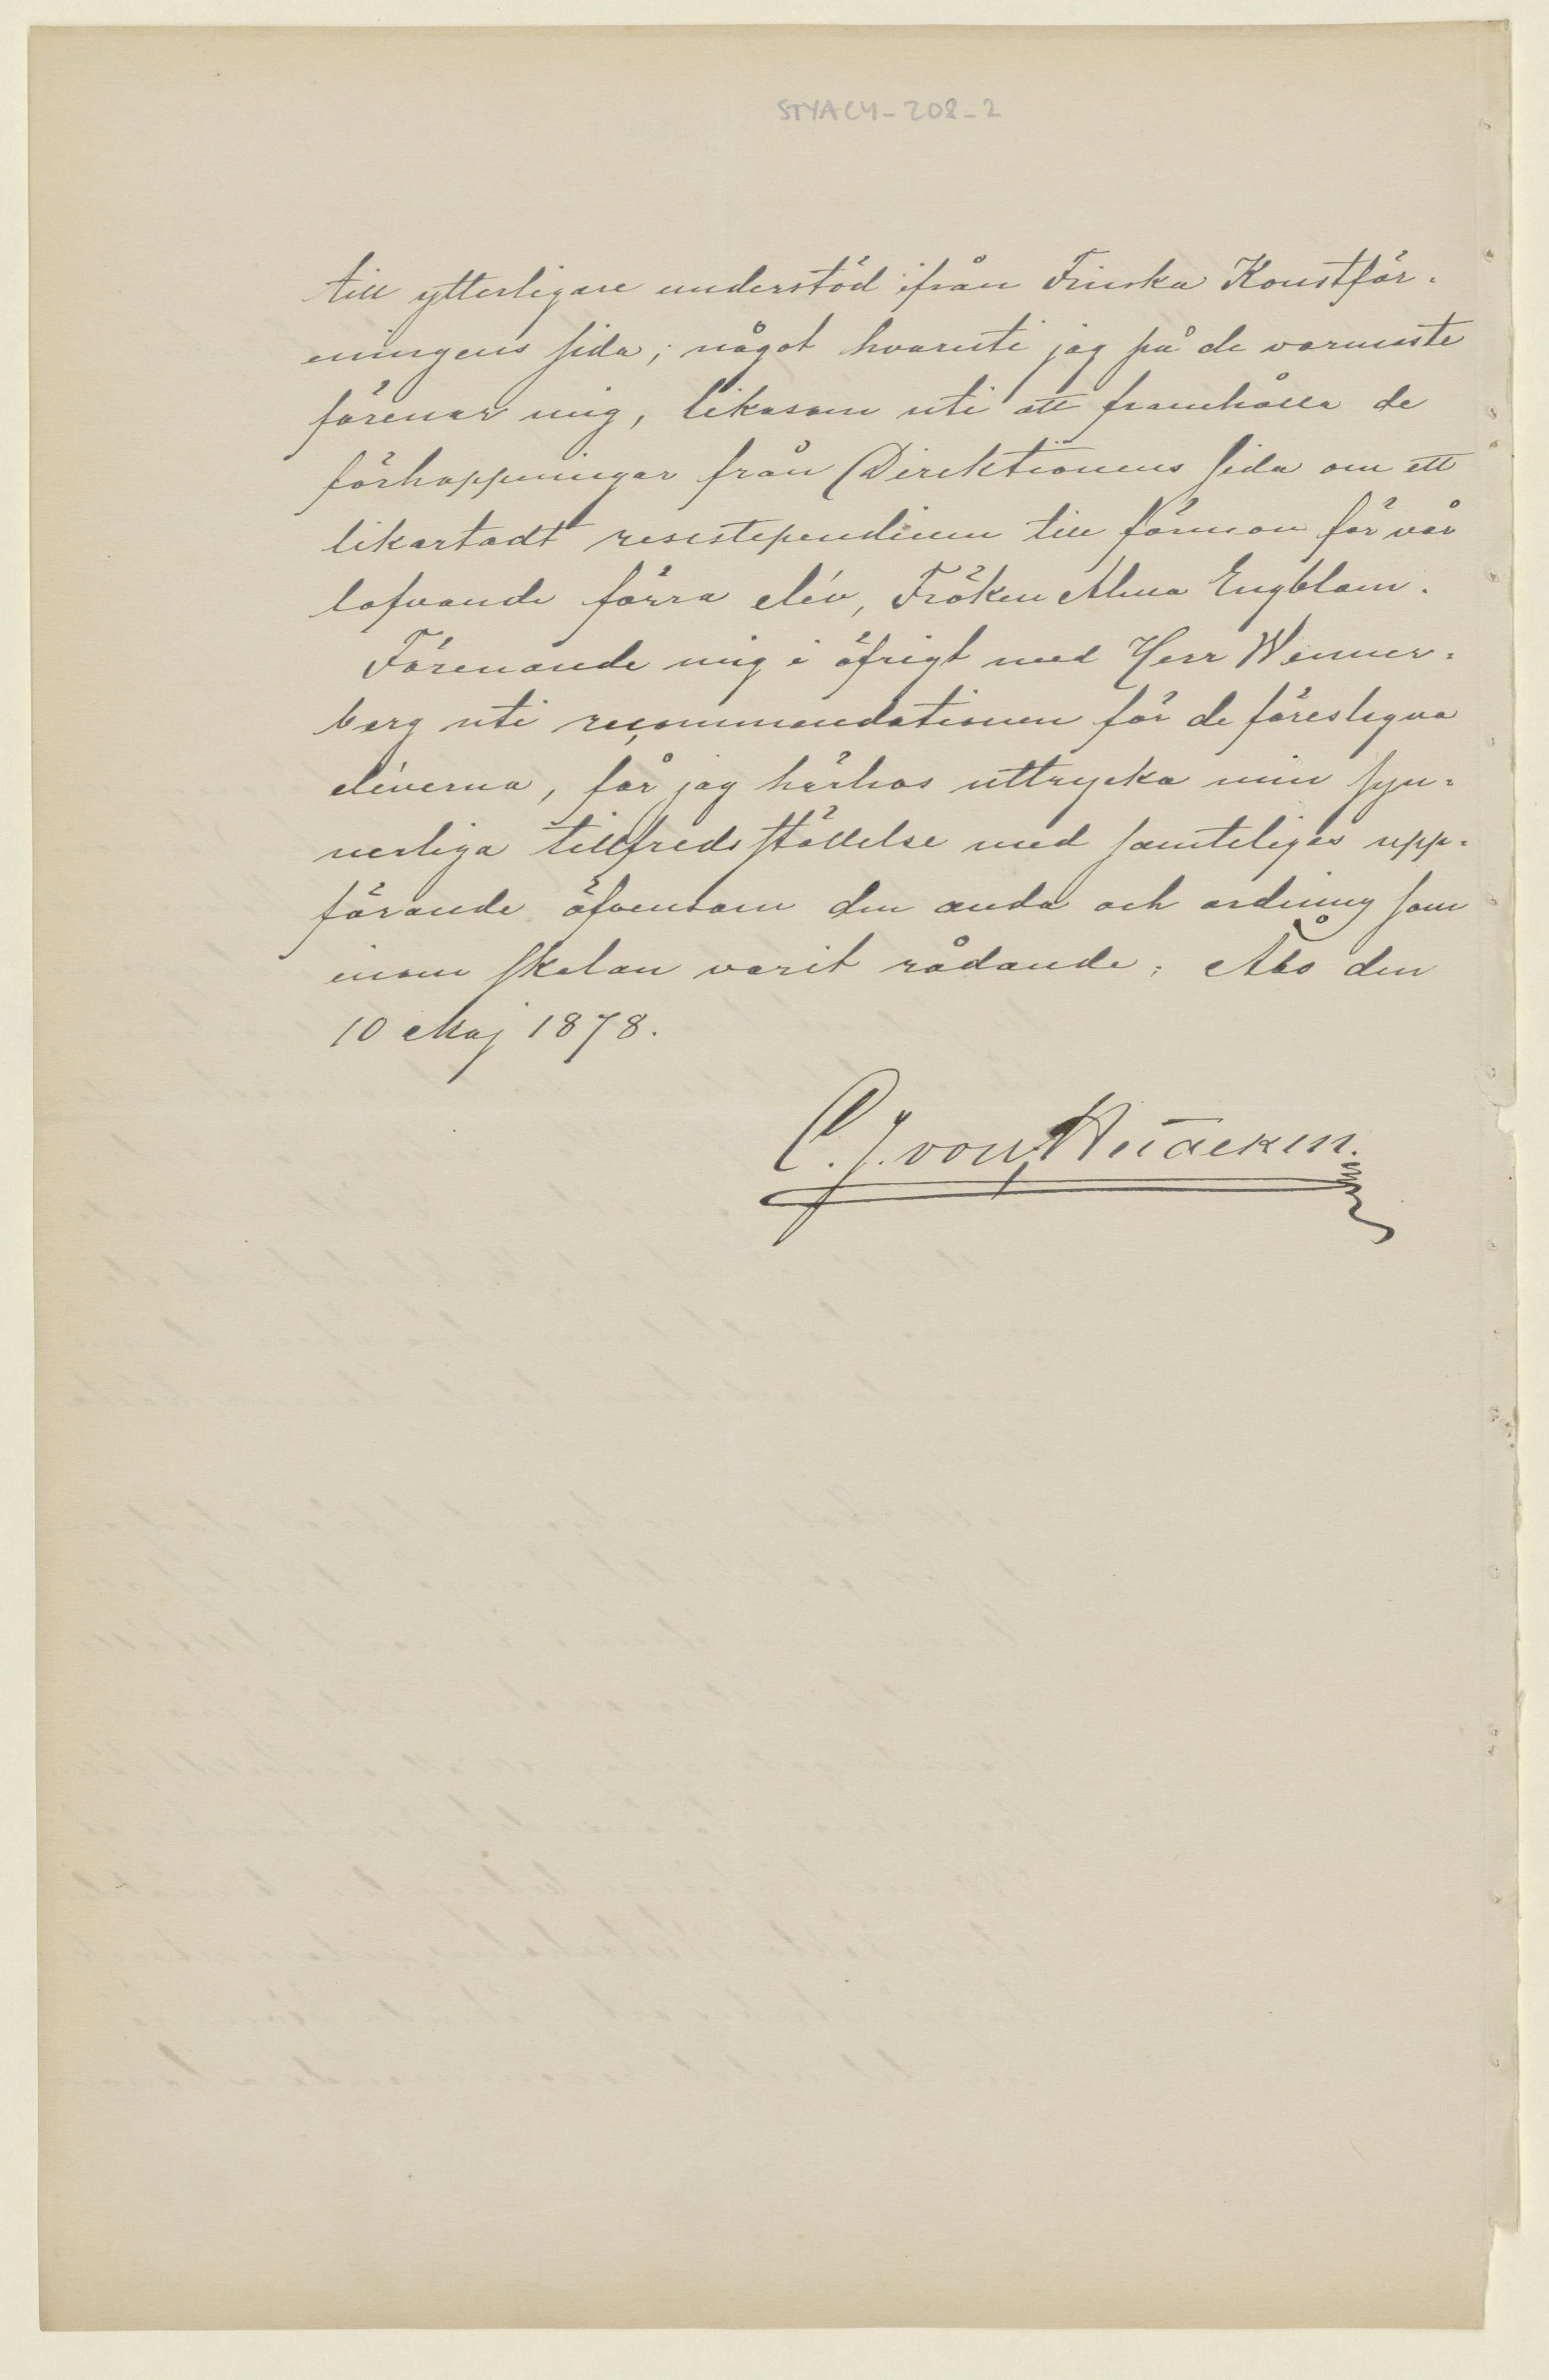 STYA C4-208-2
till ytterligare understöd ifrån Finska Konstför-
eningens sida; något hvaruti jag på de varmaste
förenar mig, likasom uti att framhålla de
förhoppningar från Direktionens sida om ett
likartadt resestependium till förmon för vår
lofvande förra elév, Fröken Alma Engblom.
Förenande mig i öfrigt med Herr Wenner-
berg uti recommendationen för de föreslagna
eléverna, får jag härhos uttrycka min syn-
nerliga tillfredsställelse med samteligas upp-
förande äfvensom den anda och ordning som
inom skolan varit rådande; Åbo den
10 Maj 1878.
C. J. von Heideken.